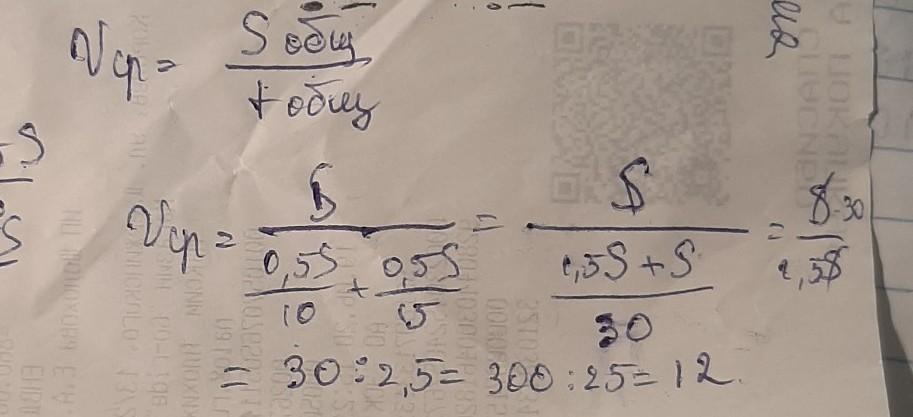 Vср = Sобщ / tобщ
Vср = S / (0,5S/10 + 0,5S/15) = S / ((1,5S + S)/30) = S·30 / 2,5S
= 30 : 2,5 = 300 : 25 = 12